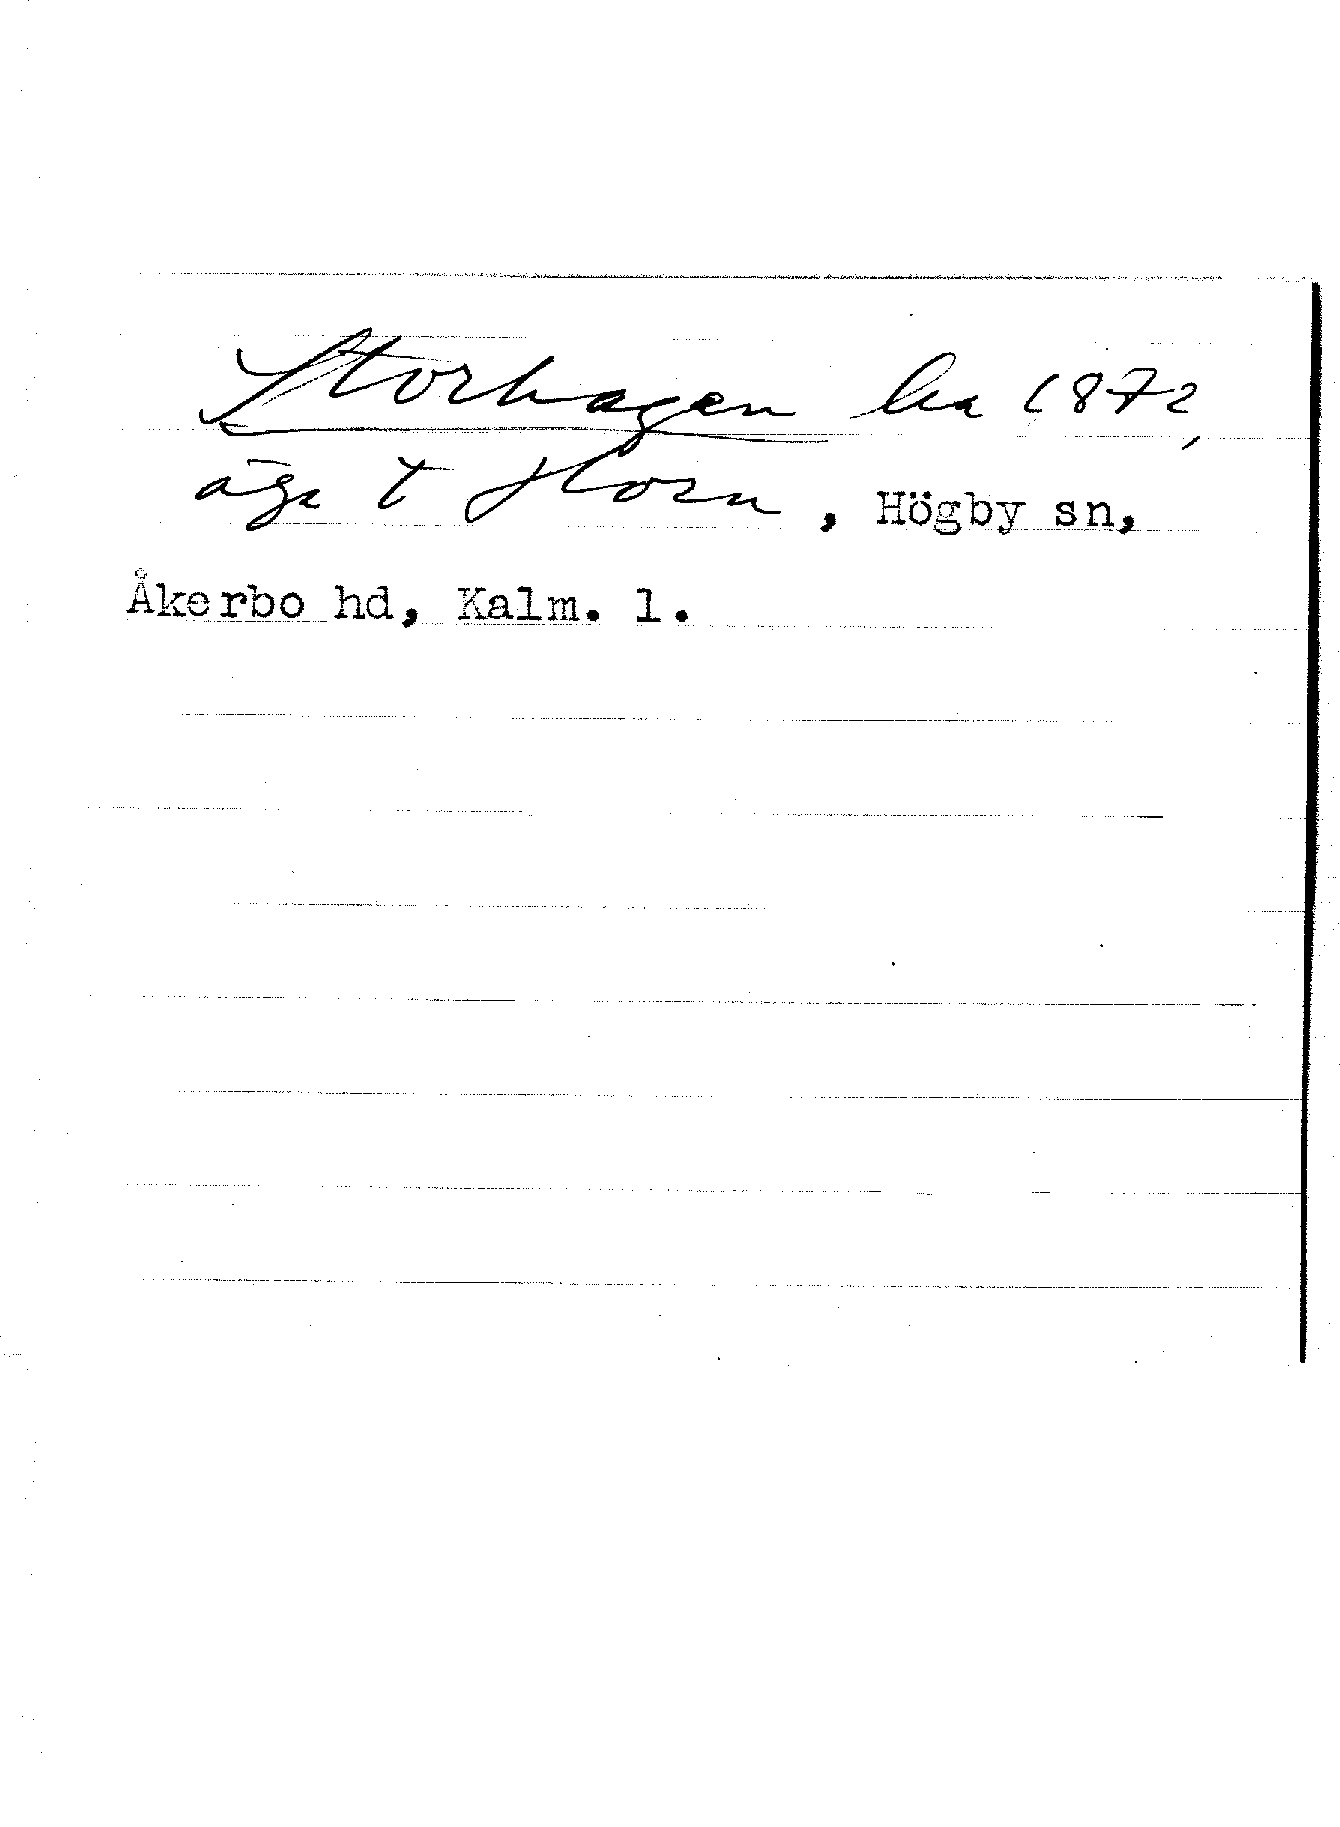 Storhagen ha 1872,
äga t Horn, Högby sn,
Åkerbo hd, Kalm. l.